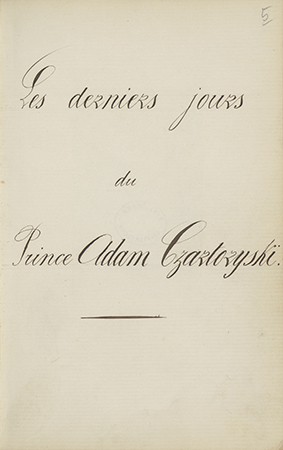 5
Les derniers jours
du
Prince Adam Czartoryskï.